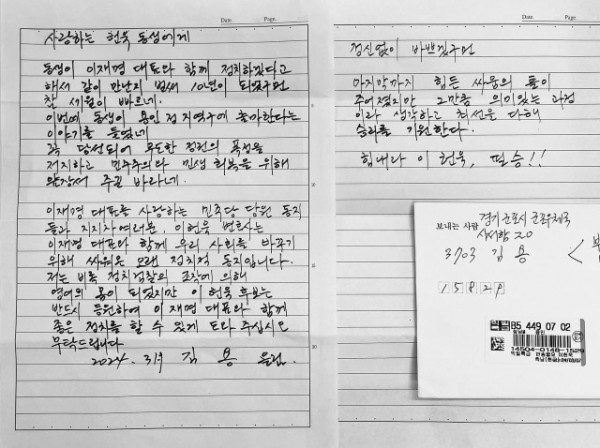 Date Page
사랑하는 현욱 동생에게
동생이 이재명 대표와 함께 정치하겠다고
해서 같이 만난지 벌써 10년이 되었구먼
참 세월이 빠르네.
이번에 동생이 용인 정 지역구에 출마한다는
이야기를 들었네
꼭 당선되어 무도한 정권의 폭정을
저지하고 민주주의와 민생 회복을 위해
앞장서 주길 바라네.
이재명 대표를 사랑하는 민주당 당원 동지
들과 지지자 여러분, 이헌욱 변호사는
이재명 대표와 함께 우리 사회를 바꾸기
위해 싸워온 오랜 정치적 동지입니다.
저는 비록 정치검찰의 조작에 의해
영어의 몸이 되었지만 이헌욱 후보는
반드시 응원하여 이재명 대표와 함께
좋은 정치를 할 수 있게 도와 주십시오
부탁드립니다
2024. 3월 김 용 올림
Date Page
정신없이 바쁘겠구먼
마지막까지 힘든 싸움의 돌이
주어졌지만 그만큼 의미있는 과정
이라 생각하고 최선을 다해
승리를 기원한다.
힘내라 이헌욱, 필승!!
보내는 사람 경기 군포시 군포우체국
사서함 20
3703 김 용
15829
B5 449 07 02
14504-0148-1529